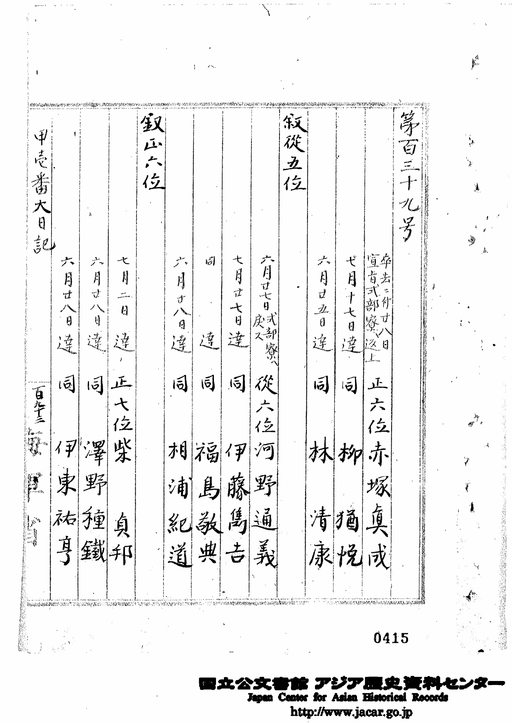 第百三十九号
卒去ニ付廿八日
宣旨式部寮返上 正六位赤塚眞成
七月十七日達 同 柳 猶悦
六月廿五日達 同 林 清康
叙從五位
六月廿七日式部寮へ戻ス 從六位河野通義
七月廿七日達 同 伊藤雋吉
同 達 同 福島敬典
六月廿八日達 同 相浦紀道
叙正六位
七月二日達 正七位柴 貞邦
六月廿八日達 同 澤野種鐵
六月廿八日達 同 伊東祐亨
甲壱番大日記
海軍省
0415
国立公文書館 アジア歴史資料センター
Japan Center for Asian Historical Records
http://www.jacar.go.jp